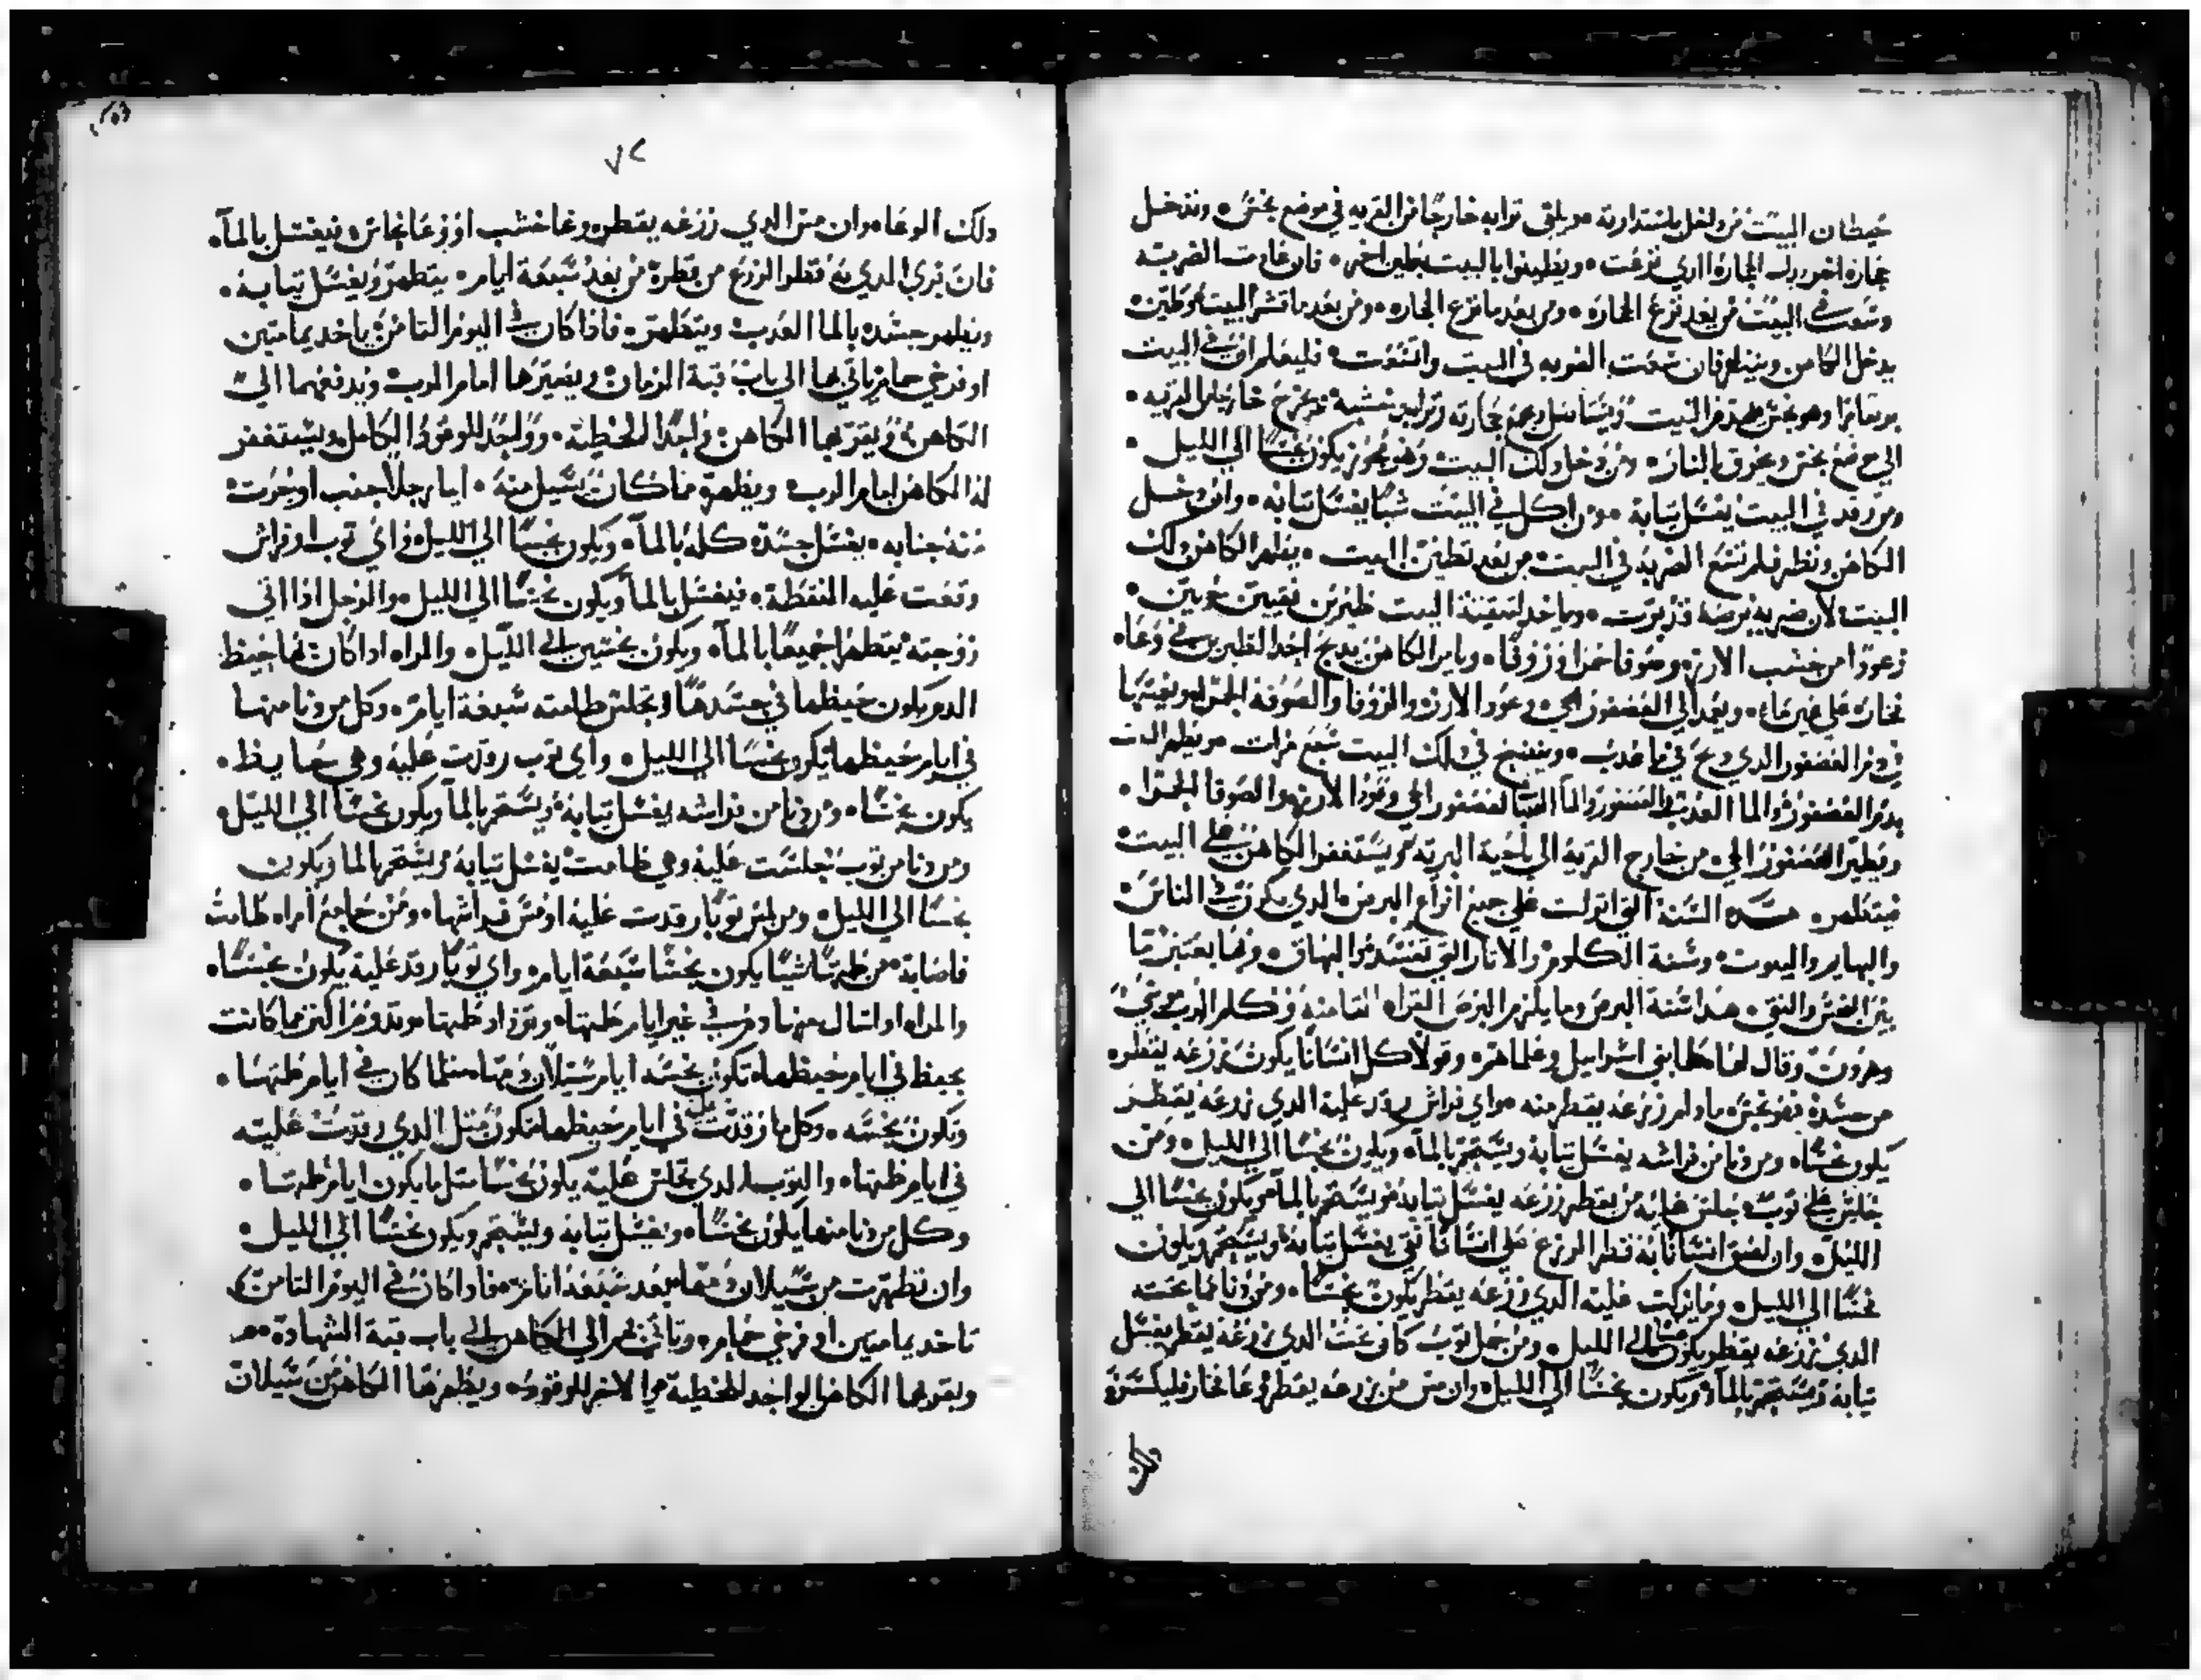 حيطان البيت من داخل باستدارته ثم يلقى ترابه خارجًا من القريه في موضع نجس ۰ وتدخل
حجاره اخر بدل الحجاره التي نزعت ۰ ويطينوا البيت بطين اخر ۰ فان عادت الضربه
وسعت في البيت من بعد نزع الحجاره ۰ ومن بعد ما نزع الحجاره ۰ ومن بعد ما قشر البيت وطين
يدخل الكاهن وينظر فان سعت الضربه في البيت واتسعت فليعلم ان في البيت
برص وهو نجس يهدم البيت وحجارته وترابه وخشبه ويخرج خارج القريه ۰
الي موضع نجس ويحرق بالنار ۰ ومن دخل ذلك البيت وهو يكون نجسًا الي الليل ۰
ومن رقد في البيت يغسل تيابه ۰ ومن اكل في البيت شيا يغسل تيابه ۰ وان دخل
الكاهن ونظر فلم تتسع الضربه في البيت من بعد تطيين البيت ۰ يطهر الكاهن ذلك
البيت لان ضربه برصه قد بريت ۰ وياخد لتنقية البيت طيرين نقيين حيين ۰
وعودًا من خشب الارز وصوفا حمرا وزوفا ۰ ويامر الكاهن يدبح احد الطيرين في وعاء
فخار على عين ماء ۰ ويعمد الي العصفور الحي وعود الارز والزوفا والصوفة الحمرا ويغمسها
في دم العصفور الدي دبح في ما عدب ۰ وينضح في ذلك البيت سبع مرات ثم يطهر البيت
بدم العصفور والما العدب والعصفور الحي وعود الارز والصوفا الحمرا ۰
ويطير العصفور الحي من خارج القرية الي ناحية البريه ثم يستغفر الكاهن على البيت
فيتطهر ۰ هده السنة التي انزلت على جميع انواع البرص الدي يكون في الناس
والبهايم والبيوت وسنة الكلوم والاتار التي تفسد والبهاق ۰ وبها يعتبر ما
بين النجس والنقي ۰ هدا سنة البرص وما يلزم البرص القراه التامنه وكلم الرب موسي
وهرون وقال لهما كلما بني اسراييل وعلماهم ۰ وقولا كل انسانًا يكون زرعه يقطر
من جسده فهو نجس مادام زرعه يقطر منه ۰ واي فراش رقد عليه الدي زرعه يقطر
يكون نجسًا ۰ ومن دنا من فراشه يغسل تيابه ويستحم بالمآ ۰ ويكون نجسًا الي الليل ۰ ومن
جلس على توب جلس عليه من يقطر زرعه يغسل تيابه ويستحم بالمآ ويكون نجسًا الي
الليل ۰ وان لصق انسانًا به قطر الزرع على انسانًا نقي يغسل تيابه ويستحم ويكون
نجسًا الي الليل ۰ وما يركب عليه الدي زرعه يقطر يكون نجسًا ۰ ومن دنا مما تحته
الدي زرعه يقطر يكون نجسًا الي الليل ۰ ومن حمل توب كان تحت الدي زرعه يقطر يغسل
تيابه ويستحم بالمآ ويكون نجسًا الي الليل ۰ وان مس من زرعه يقطر وعا فخار فليكسر
ذلك
٧٢
ذلك الوعاء ۰ وان مس الدي زرعه يقطر وعا خشب او وعا نحاس فيغتسل بالمآ ۰
فان بري الدي به قطر الزرع من قطره من بعد سبعة ايام ۰ يتطهر ويغسل تيابه ۰
ويطهر جسده بالما العدب ويتطهر ۰ فاذا كان في اليوم التامن ياخد يمامتين
او فرخي حمام ياتي بها الي باب قبة الزمان ويصيرها امام الرب ويدفعهما الي
الكاهن ويقربها الكاهن واحدًا للخطية ۰ وواحدًا للوقود الكامل ويستغفر
له الكاهن امام الرب ويطهره مما كان يسيل منه ۰ ايما رجلاً جنب او خرجت
منه جنابه ۰ يغسل جسده كله بالمآ ۰ ويكون نجسًا الي الليل واي توب او فراش
وقعت عليه النقطه ۰ فيغسل بالمآ ويكون نجسًا الي الليل ۰ والرجل اذا اتي
زوجته يتطهرا جميعًا بالمآ ۰ ويكون نجسين الي الليل ۰ والمراه ادا كان لها حيظ
الدم يكون حيظها في جسدها وتجلس طامته سبعة ايام ۰ وكل من دنا منها
في ايام حيظها يكون نجسًا الي الليل ۰ واي توب رقدت عليه وهي حايظ ۰
يكون نجسًا ۰ ومن دنا من فراشه يغسل تيابه ويستحم بالمآ ويكون نجسًا الي الليل ۰
ومن دنا من توب جلست عليه وهي طامت يغسل تيابه ويستحم بالما ويكون
نجسًا الي الليل ۰ ومن لمس توبًا رقدت عليه او مس فراشها ۰ ومن جامع امراه طامت
فاصابه من طمتها شيًا يكون نجسًا سبعة ايام ۰ واي توبًا رقد عليه يكون نجسًا ۰
والمراه ادا سال منها دم في غير ايام طمتها ۰ وتزداد طمتها ۰ اكتر مما كانت
تحيظ في ايام حيظها ۰ تكون نجسه ايام سيلان دمها مثلما كان في ايام طمتها ۰
وتكون نجسه ۰ وكلما رقدت عليه في ايام حيظها يكون متل الدي رقدت عليه
في ايام طمتها ۰ والتوب الدي تجلس عليه يكون نجسًا متل ما يكون ايام طمتها ۰
وكل من دنا منها يكون نجسًا ۰ ويغسل تيابه ويستحم ويكون نجسًا الي الليل ۰
وان تطهرت من سيلان دمها بعد سبعة ايام ۰ فادا كان في اليوم التامن
تاخد يمامتين او فرخي حمام ۰ وتاتي بهم الي الكاهن الي باب قبة الشهادة ۰
ويقربها الكاهن الواحد للخطية ۰ والاخر للوقود ۰ ويطهرها الكاهن من سيلان